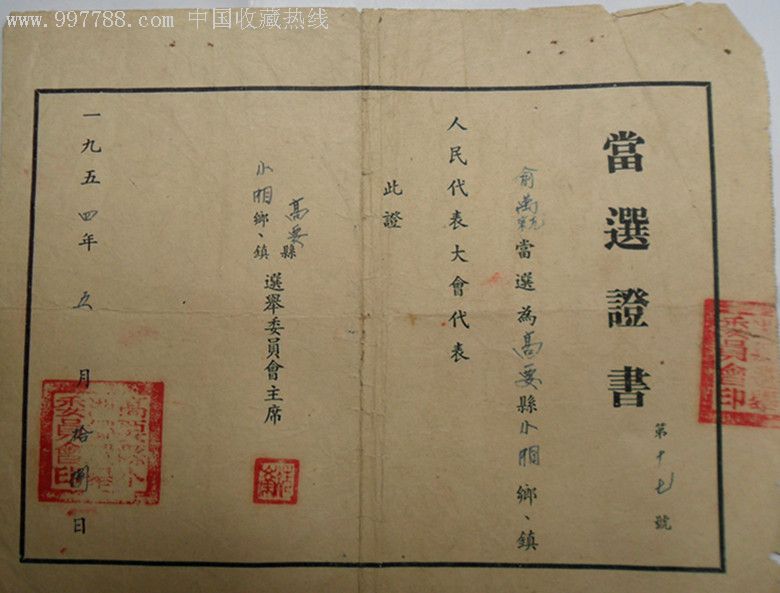 www.997788.com 中国收藏热线
當選證書
第十七號
俞萬 當選為高要縣小湘鄉、鎮
人民代表大會代表
此證
高要縣
小湘鄉、鎮
選舉委員會主席
一九五四年五月拾捌日
委員會印